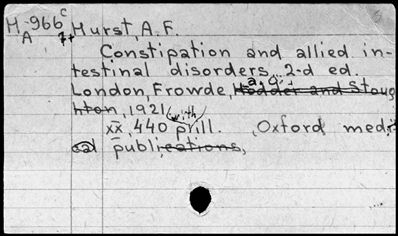 M-966c Hurst, A.F.
A 7+
Constipation and allied in-
testinal disorders. 2-d ed.
London, Frowde, Hodder and Stoug
hton, 1921. (with)
xx, 440 p. ill. Oxford medi
cal publications,